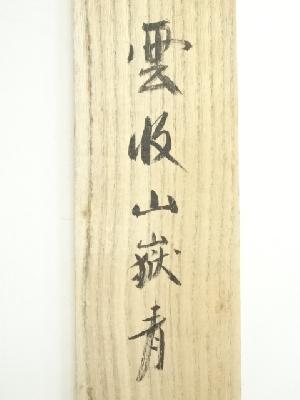 雲收山嶽青